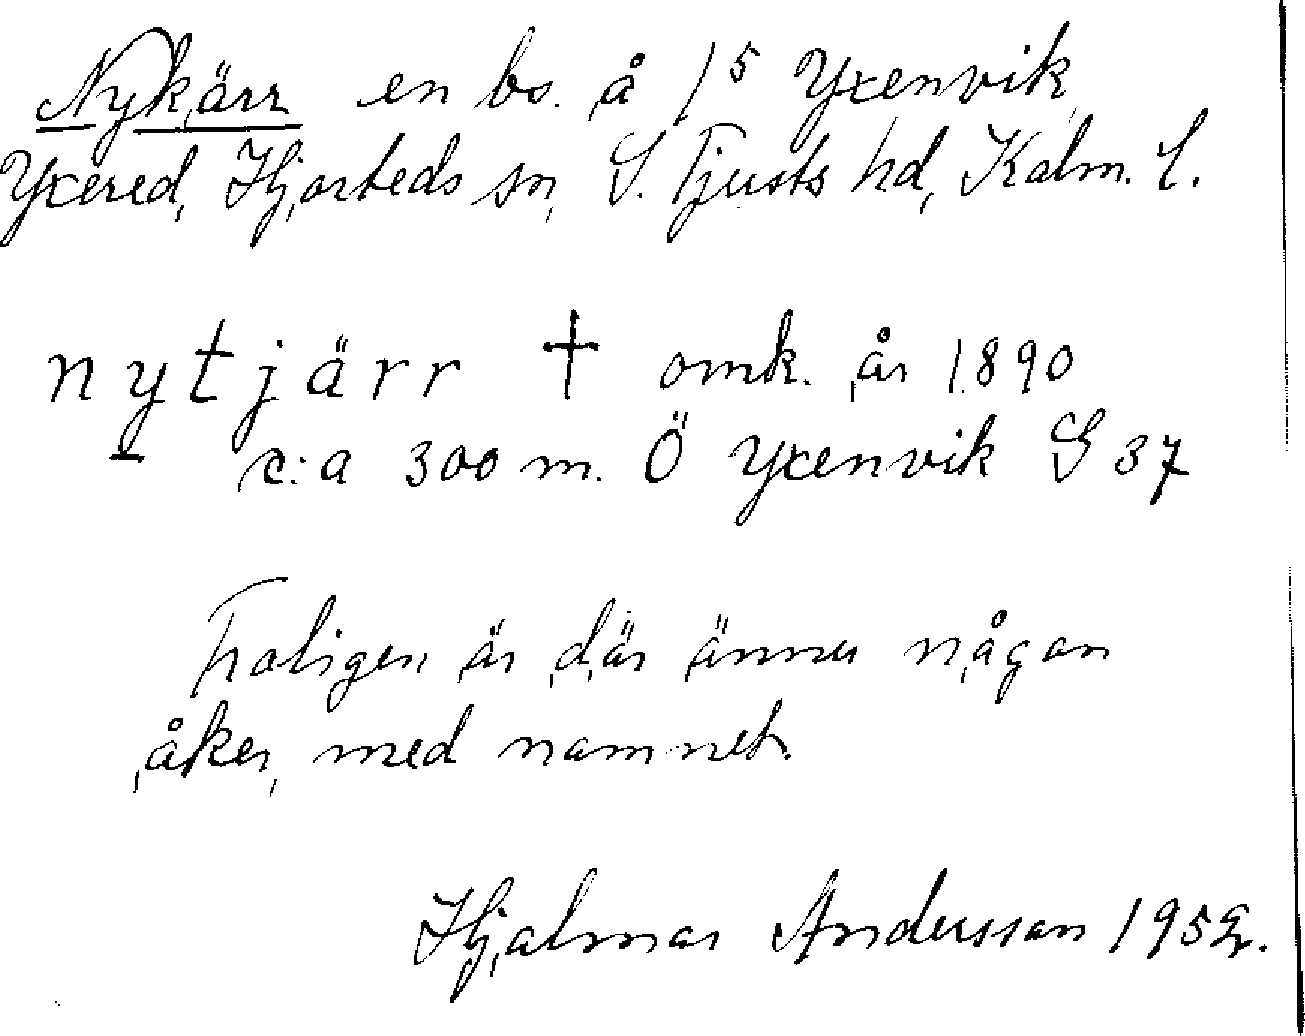 Nykärr en bs. å 1⁵ Yxenvik,
Yxered, Hjorteds sn, S. Tjusts hd, Kalm. l.
nytjärr † omk. år 1890
c:a 300 m. Ö Yxenvik G 37
Troligen är där ännu någon
åker med namnet.
Hjalmar Andersson 1952.